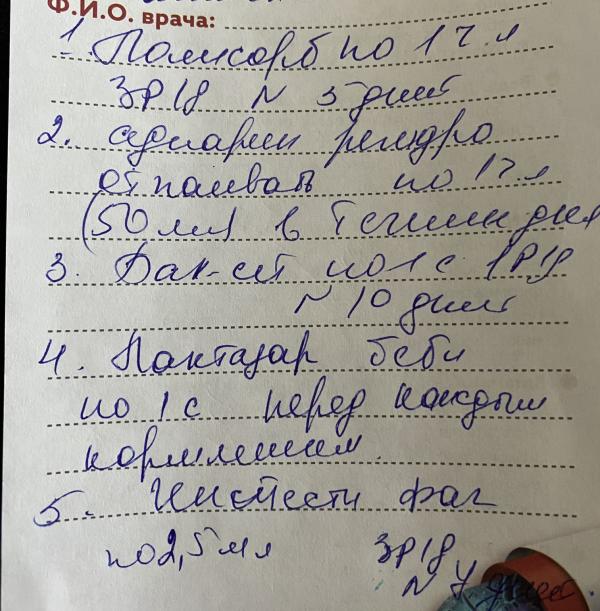 Ф.И.О. врача:
1. Полисорб по 1 ч.л
3Р1д N 5 дней
2. регидро
отпаивать по 1 ч.л
(50 мл) в течении дня
3. Бак-сет по 1 с 1Р1д
N 10 дней
4. Лактазар беби
по 1 с перед каждым
кормлением.
5. фаг
по 2,5 мл 3Р1д
N 7 дней